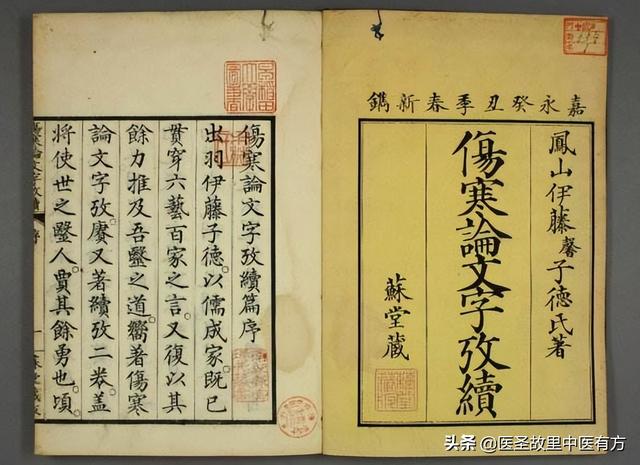 嘉永癸丑季春新鐫
鳳山伊藤馨子德氏著
傷寒論文字攷續
蘇堂藏
傷寒論文字攷續篇序
出羽伊藤子德以儒成家既已
貫穿六藝百家之言又復以其
餘力推及吾毉之道嚮著傷寒
論文字攷賡又著續攷二卷蓋
將使世之毉人賈其餘勇也頃
头条 @医圣故里中医有方